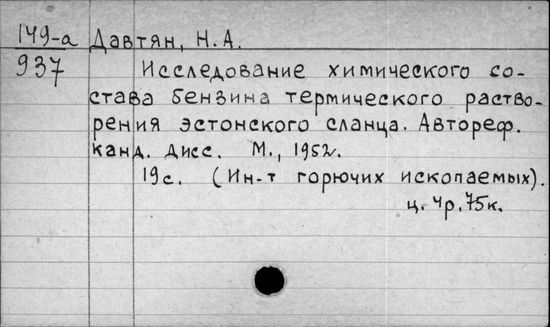 149-а Давтян, Н.А.
937 Исследование химического со-
става бензина термического раство-
рения эстонского сланца. Автореф.
канд. дисс. М., 1952.
19с. (Ин-т горючих ископаемых).
ц. 4р.75к.